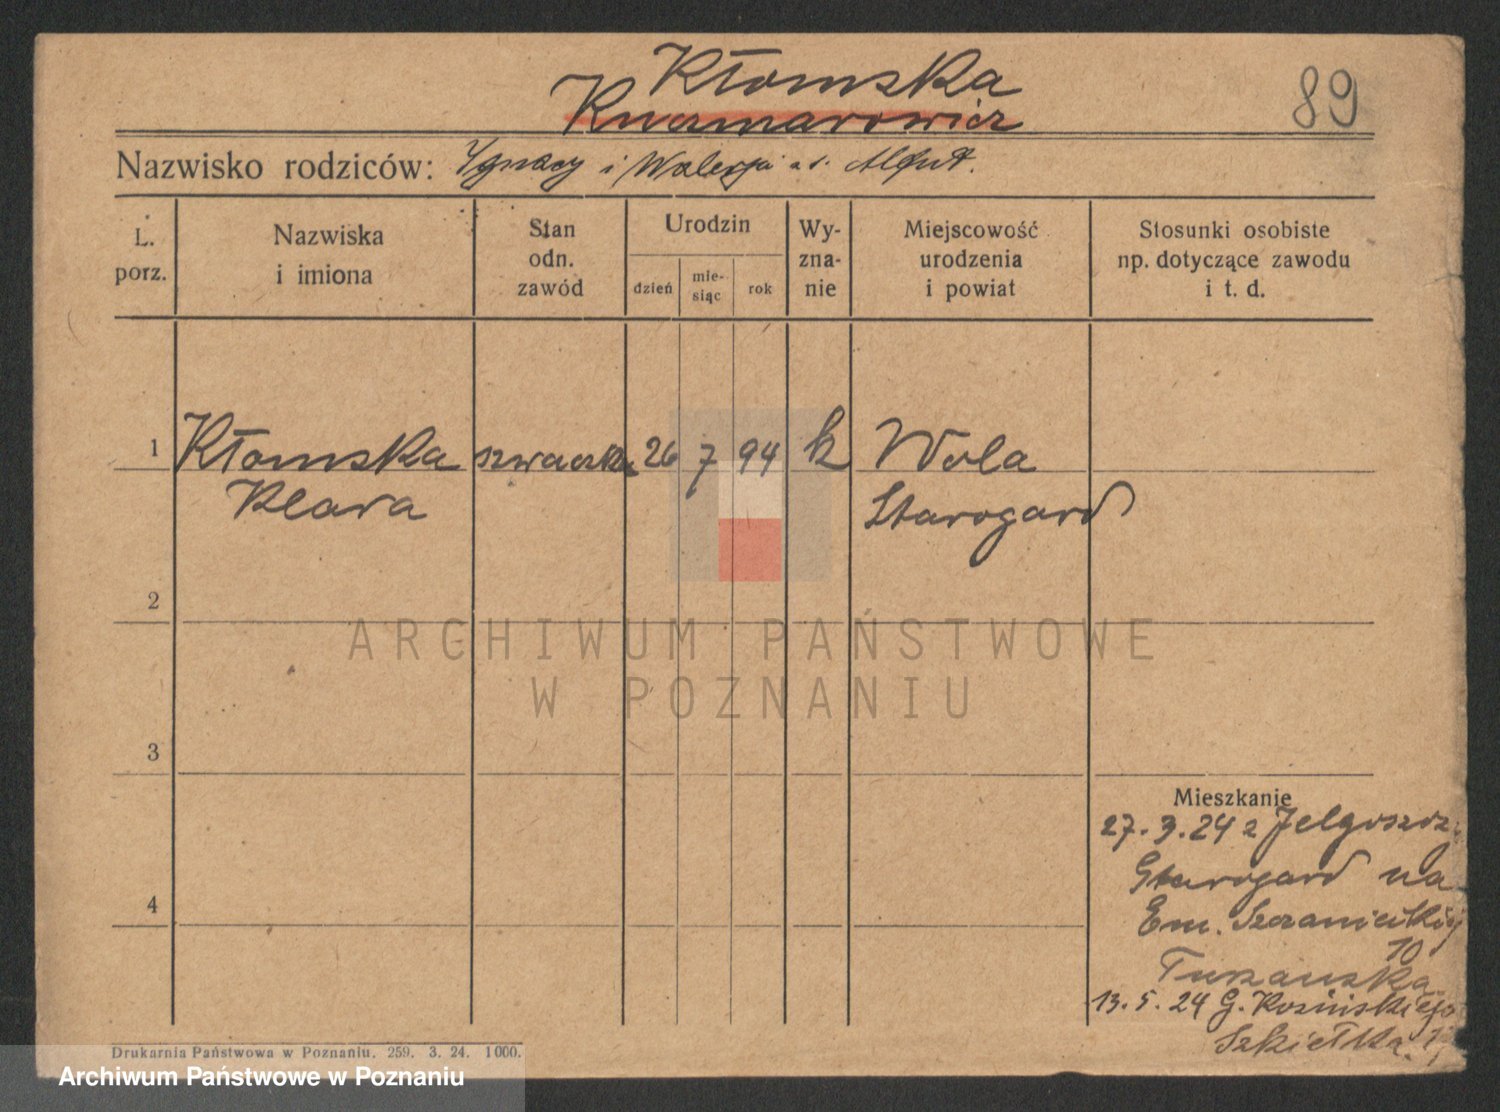 Kłomska
Kuczmarowicz
89
Nazwisko rodziców: Ignacy i Walerja
L. porz.
Nazwiska i imiona
Stan odn. zawód
Urodzin
dzień
mie-
siąc
rok
Wy-
zna-
nie
Miejscowość urodzenia i powiat
Stosunki osobiste np. dotyczące zawodu i t. d.
1 Kłomska szwaczka 26 7 94 k Wola
Klara Starogard
2
ARCHIWUM PAŃSTWOWE
W POZNANIU
3
Mieszkanie
27.3.24 z
4
Starogard na
Em. Sczanieckiej
10
13.5.24 G. Kosińskiego
Drukarnia Państwowa w Poznaniu. 259. 3. 24. 1000.
Archiwum Państwowe w Poznaniu